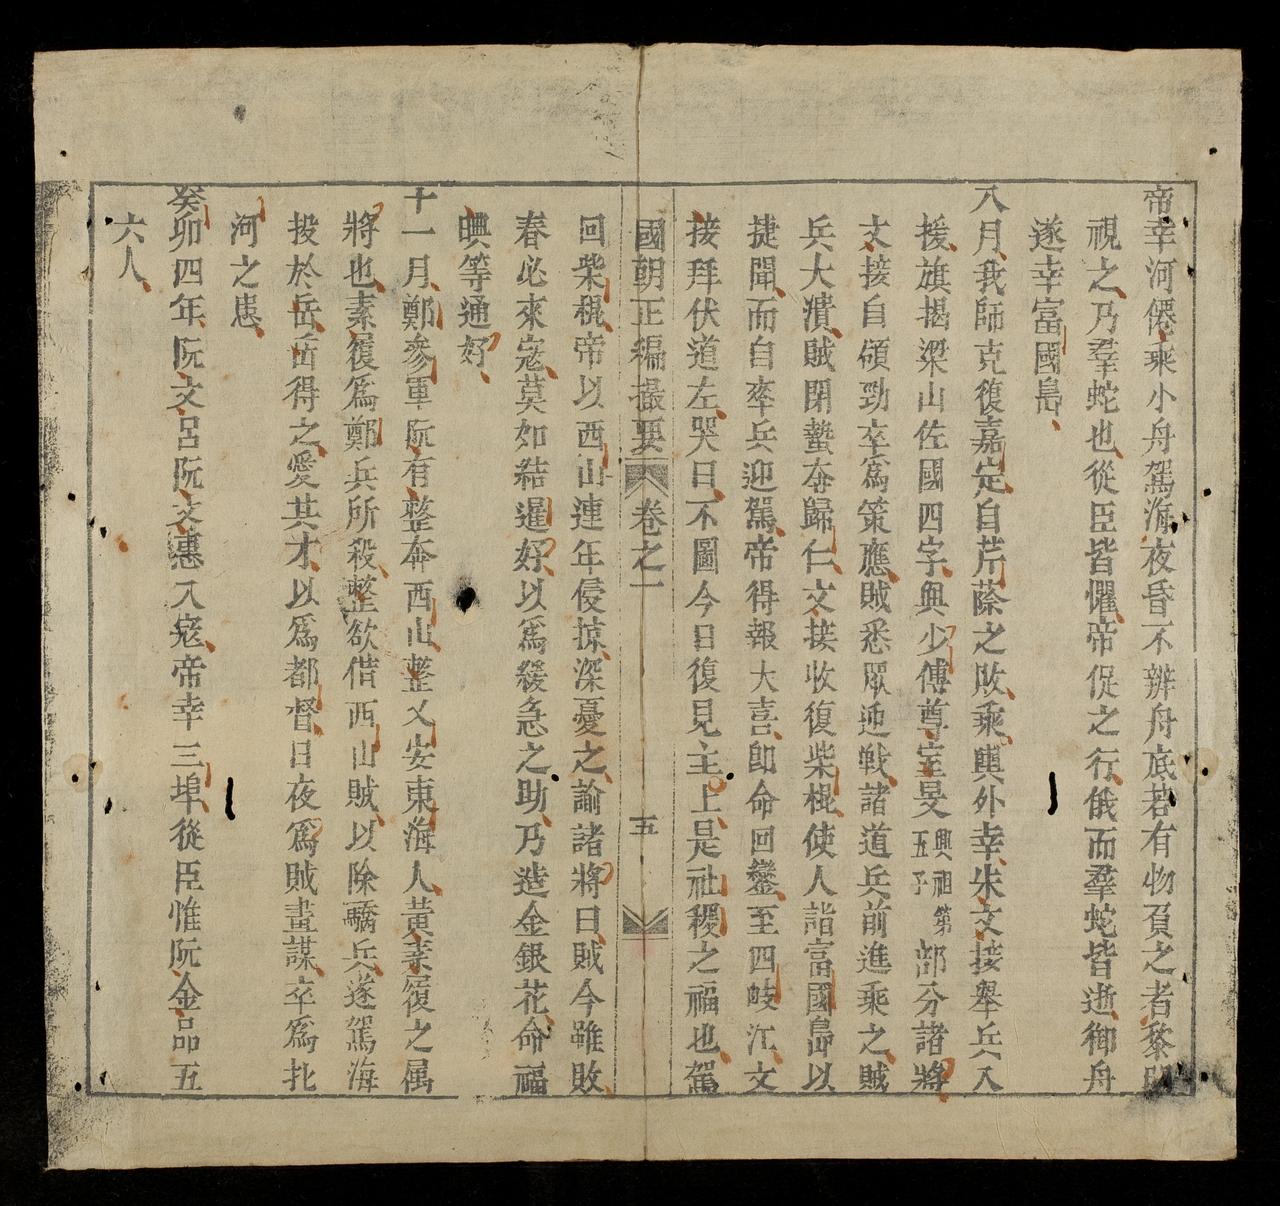 帝幸河僊乘小舟駕海夜昏不辨舟底若有物負之者黎明
視之乃羣蛇也從臣皆懼帝促之行俄而羣蛇皆逝御舟
遂幸富國島
八月我師克復嘉定自芹蒢之敗乘輿外幸朱文接舉兵入
援旗揭梁山佐國四字與少傅尊室旻興祖第五子部分諸將
文接自領勁卒爲策應賊悉眾迎戰諸道兵前進乘之賊
兵大潰賊閉蟄奔歸仁文接收復柴棍使人詣富國島以
捷聞而自率兵迎駕帝得報大喜卽命回鑾至四岐江文
接拜伏道左哭曰不圖今日復見主上是社稷之福也駕
國朝正編撮要 卷之一 五
回柴棍帝以西山連年侵掠深憂之諭諸將曰賊今雖敗
春必來寇莫如結暹好以爲緩急之助乃造金銀花命福
㬌等通好
十一月鄭參軍阮有整奔西山整乂安東海人黃素履之属
將也素履爲鄭兵所殺整欲借西山賊以除驕兵遂駕海
投於岳岳得之愛其才以爲都督日夜爲賊畫謀卒爲北
河之患
癸卯四年阮文呂阮文惠入寇帝幸三埠從臣惟阮金品五
六人